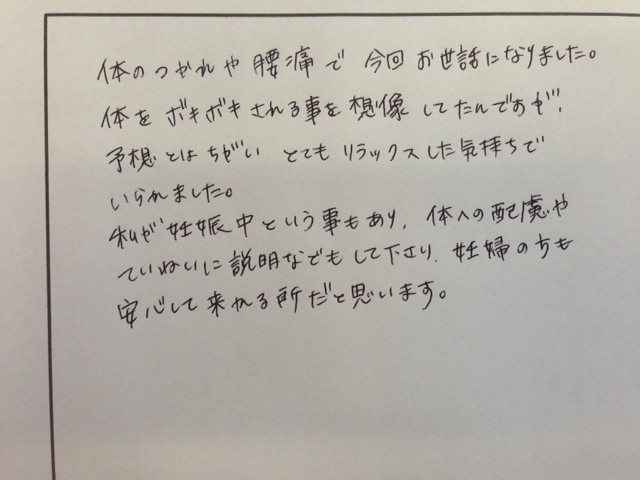 体のつかれや 腰痛で 今回 お世話になりました。
体を ボキボキされる事を 想像 してたんですが、
予想とはちがい とても リラックスした気持ちで
いられました。
私が妊娠中という事もあり、体への配慮や
ていねいに説明などもして下さり、妊婦の方も
安心して来れる所だと思います。